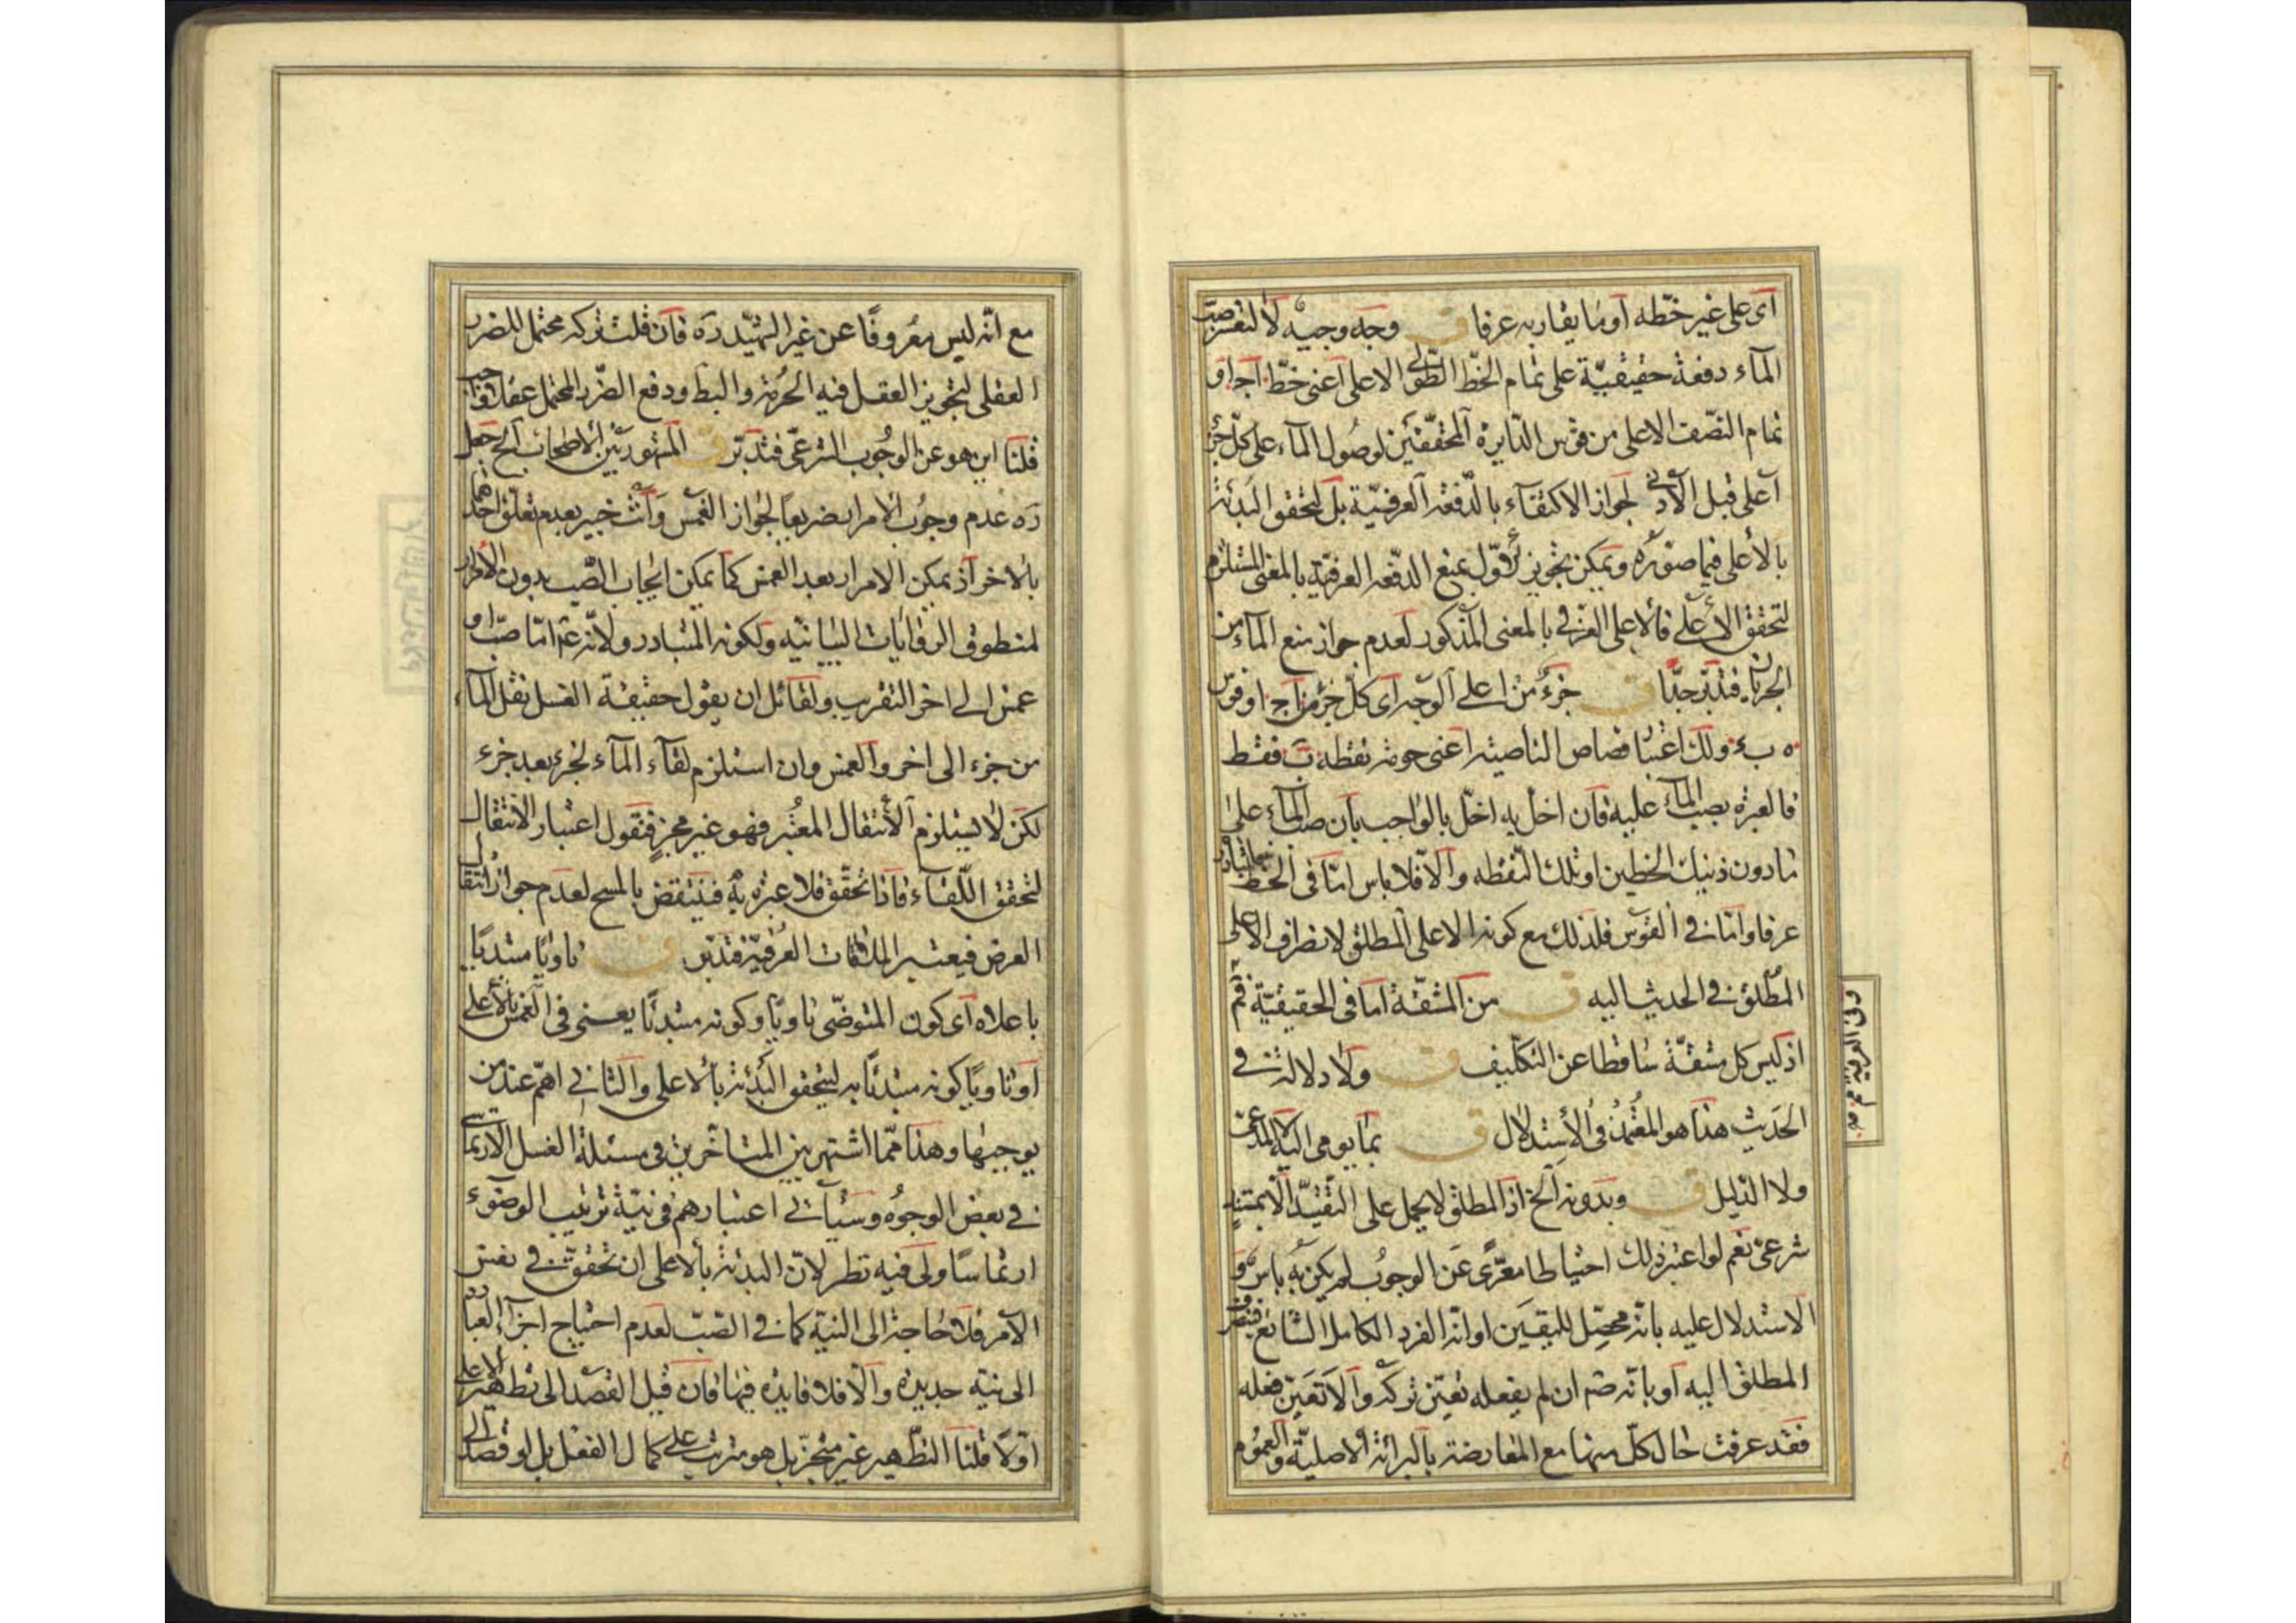 آی علی غیر خطّه او ما یقاربه عرفا ق وجه وجیه لا لتعسر صب
المآء دفعة حقیقیّة علی تمام الخطّ الطّولی الاعلی اعنی خطّ اج او
تمام النصّف الاعلی من قوس الدّایرة المحقّقتین لوصُول المآء علی کلّ جزء
اعلی قبل الادنی لجواز الاکتفآء بالدّفعة العرفیّة بل لتحقق البدئة
بالأعلی فیما صوّره ویمکن تجویز الاوّل بمنع الدفّعه العرفیّة بالمعنی المستلزم
لتحقق الاعلی فالاعلی العرفی بالمعنی المذکور لعدم جواز منع المآء من
الجریان فتدبّر جدّا ق جزءٌ من اعلی الوجه ای کلّ جزء من اج او قوس
ه ب ء ولک اعتبار قصاص الناصیة اعنی حومة نقطه ب فقط
فالعبرة بصب المآء علیه فان اخل به اخلّ بالواجب بان صب المآء علی
مادون ذینک الخطین او تلک النّقطه والّا فلا باس امّا فی الخط فللتبادر
عرفا وامّا فی القوس فلذلک مع کونه الاعلی المطلق لانصراف الاعلی
المطلق فی الحدیث الیه ق من المشقّة اما فی الحقیقیّة فم
اذ لیس کل مشقّة ساقطا عن التکلیف ق ولا دلالة فی
الحَدیث هذا هو المعُتمدُ فی الأستدلال ق بما یومی الیه لا المدعی
ولا الدلیل ق وبدونه الخ اذ المطلق لا یحمل علی التقیّد الّا بمثبت
شرعیّ نعم لو اعتبر ذلک احتیاطا معرّیً عَن الوجوبُ لم یکن به باس و
الاستدلال علیه بانّه محصّل للیقین او انّه الفرد الکامل الشّایع فینصرف
المطلق الیه او بانّه صم ان لم یفعله تعیّن ترکه والّا تَعیّن فعله
فقد عرفت حال کلّ منها مع المعارضة بالبرائة الاصلیّة والعموم
وفی العرفیة م منه
مع انّه لیس معُروفًا عن غیر الشّهید ره فان قلت ترکه محتمل للضرر
العقلی لتجویز العقل فیه الحُرمة والبط ودفع الضّرر المحتمل عقلا واجب
قلنا این هو عن الوجُوب الشرعیّ فتدبّر ق المشهور بین الاصحاب الخ جعل
ره عدم وجوُب الامرار تفریعاً لجواز الغمس وانت خبیر بعدم تعلّق احدهما
بالاخر اذ یمکن الامرار بعد الغمس کما یمکن ایجاب الصّب بدون الامرار
لمنطوق الروایات البیانیّه ولکونه المتبادر ولانّه عم امّا صبّ او
غمس الی اخر التقریب ولقائل ان یقول حقیقة الغسل نقل المآء
من جزء الی اخر والغمس وان استلزم لقآء المآء لجزء بعد جزء
لکن لا یستلزم الأنتقال المعتبر فهو غیر مجزٍ فنقول اعتبار الانتقال
لتحقق اللّقآء فاذا تحقّق فلا عبرة به فینتقض بالمسح لعدم جواز انتقال
العرض فیعتبر الملاقات العُرفیّة فتدبّر ق ناویًا مبتدئًا
باعلاه ای کون المتوضّی ناویّا وکونه مبتدئًا یعنی فی الغمس بالأعلی
او ناویًا کونه مبتدئًا به لیتحقق البدئة بالاعلی والثانی اهمّ عند من
یوجبها وهذا ممّا اشتهر بین المتاخّرین فی مسئلة الغسل الارتماسی
فی بعض الوجوُه وسیأتی اعتبارهم فی نیّة ترتیب الوضوء
ارتماسًا ولی فیه نظر لانّ البدئة بالاعلی ان تحققت فی نفس
الامر فلا حاجة الی النیة کما فی الصّبّ لعدم احتیاج اجزآء العبادة
الی نیّه جدیدة والّا فلا فایدة فیها فان قیل القصد الی تطهیر الاعلی
اوّلا قلنا التطّهیر غیر منجز بل هو مترتب علی کمال الفعل بل لو قصد الی